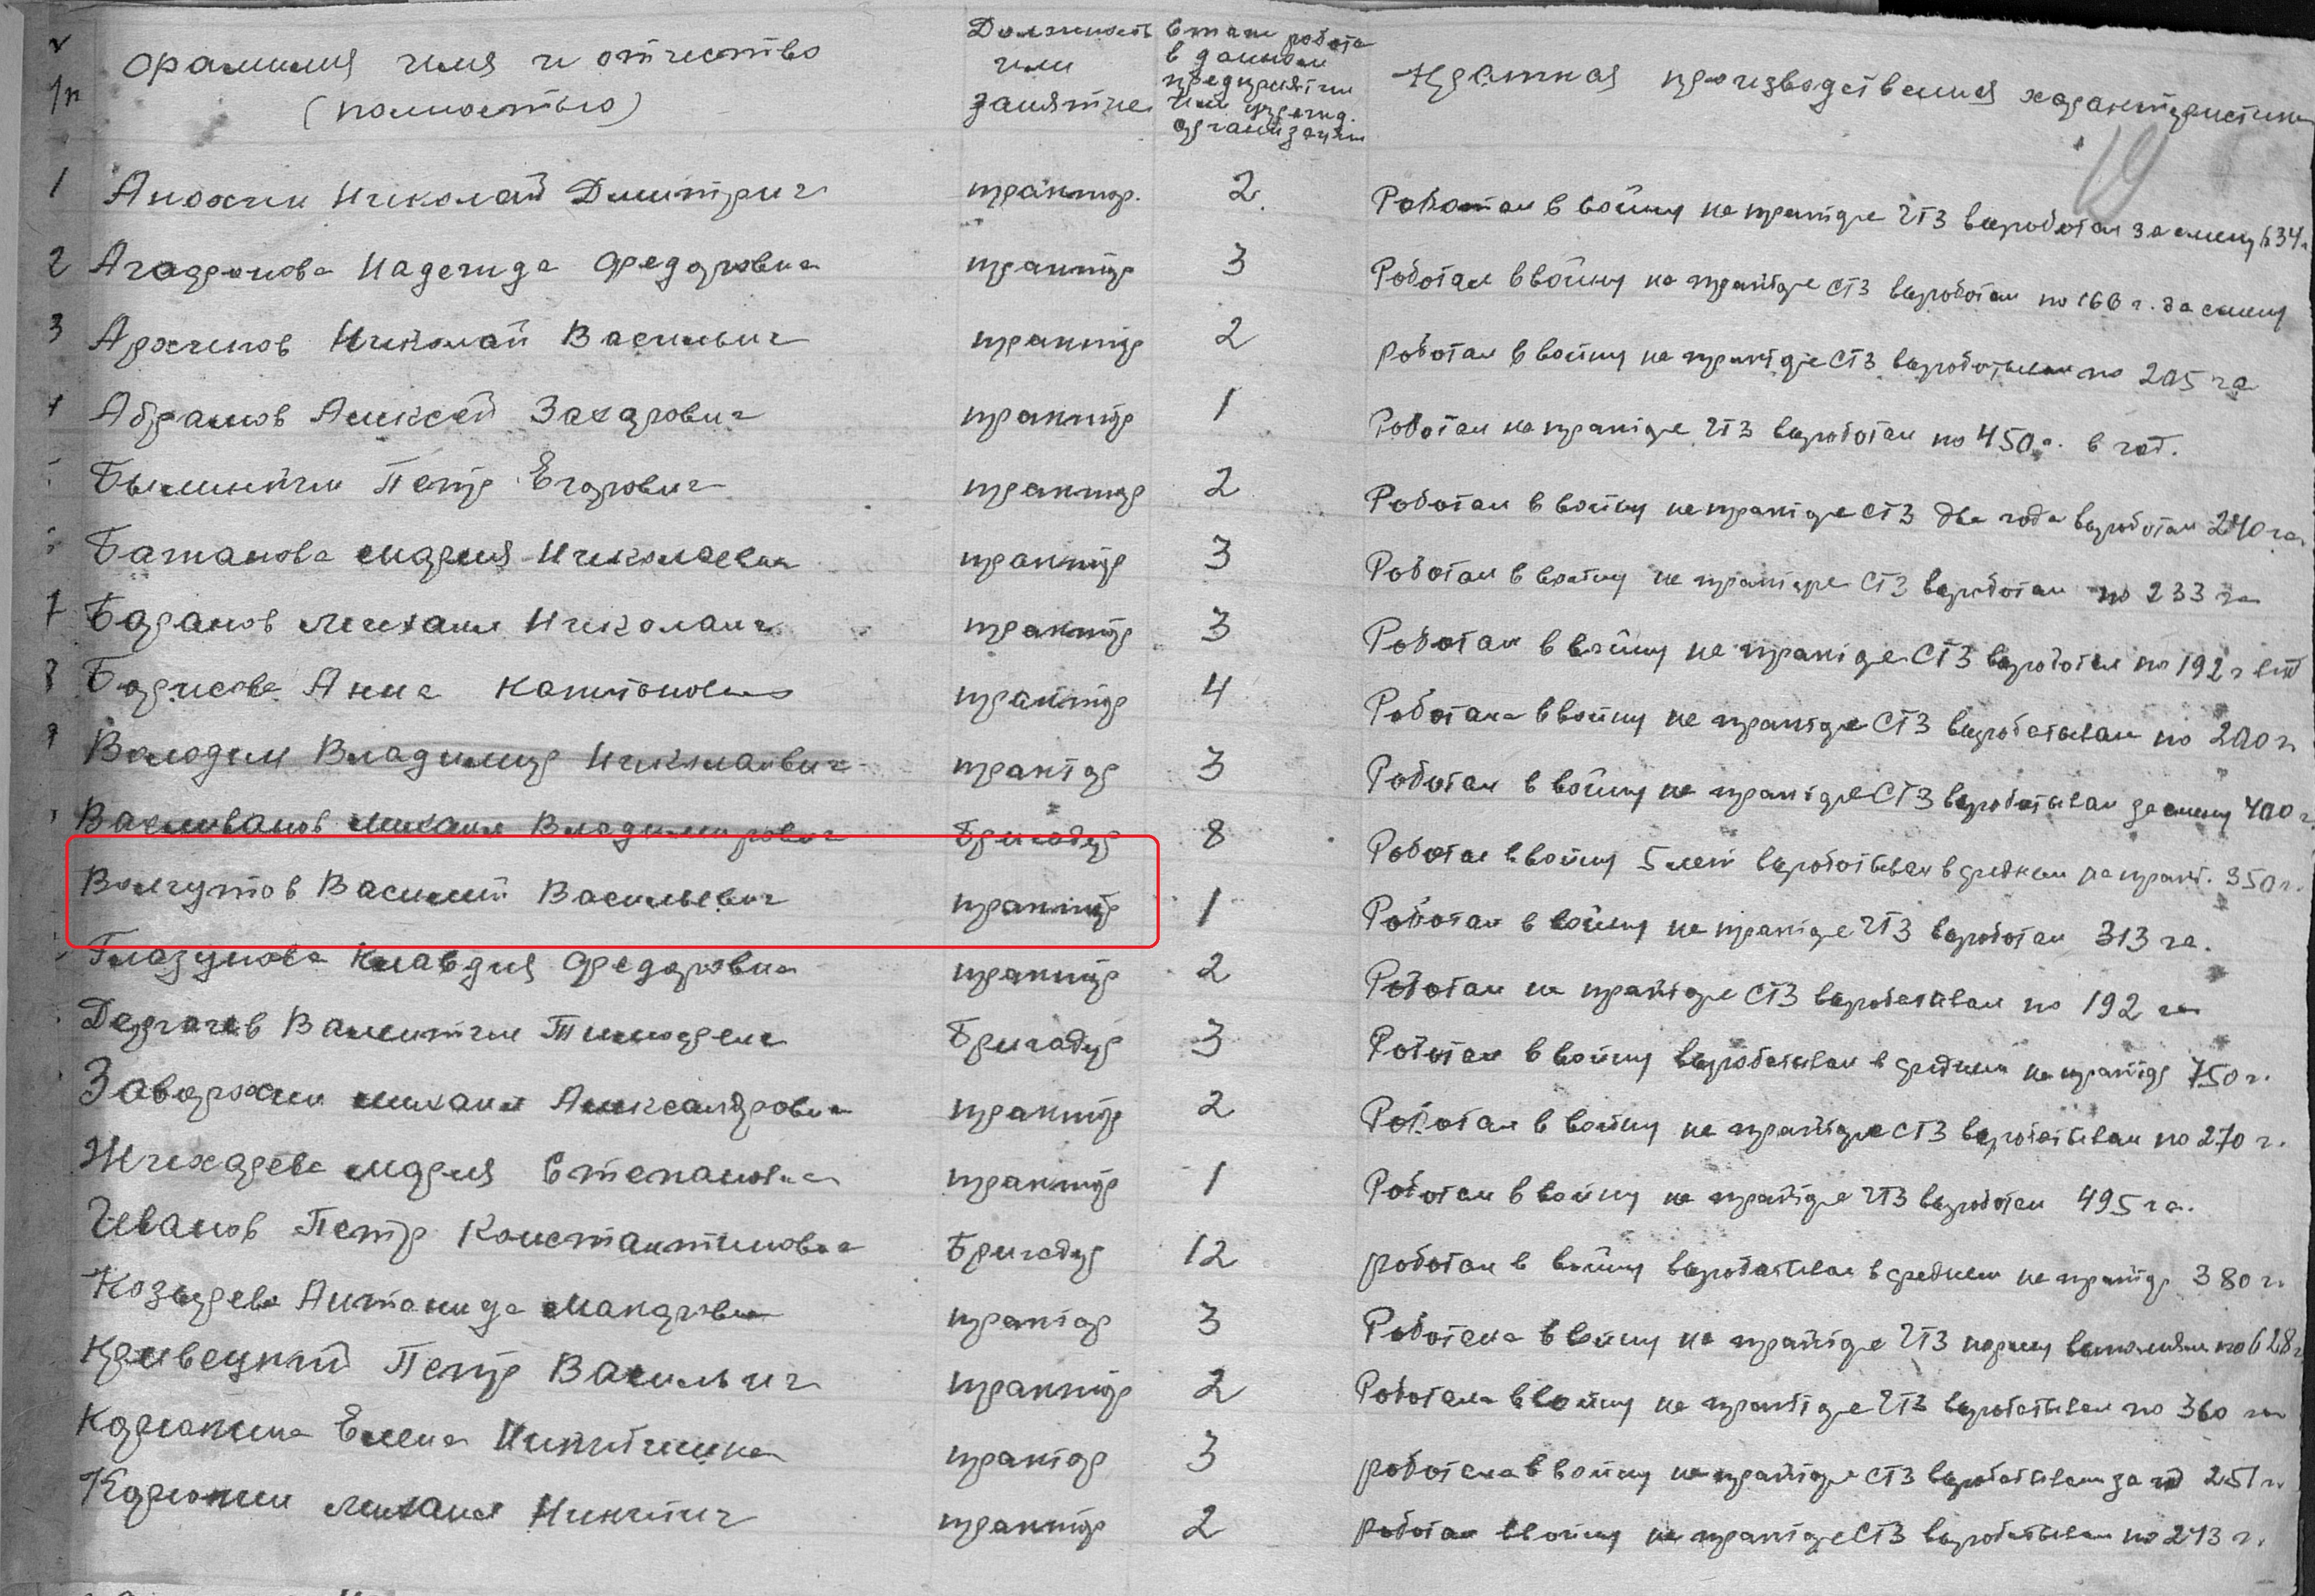 Фамилия имя и отчество
(полностью)
Должность
или
занятие
Стаж работы
в данном
предприятии
или учрежд.
организации
Краткая производственная характеристика
19
1 Анохин Николай Дмитрич трактор. 2. Работал в войну на тракторе ЧТЗ выработал за смену 634
2 Агафонова Надежда Федоровна трактор 3 Работал в войну на тракторе СТЗ выработал по 166 г. за смену
3 Архипов Николай Васильич трактор 2 работал в войну на тракторе СТЗ вырабатывал по 205 га
4 Абрамов Алексей Захарович трактор 1 Работал на тракторе ЧТЗ выработал по 450 г. в год.
Петр Егорович трактор 2 Работал в войну на тракторе СТЗ два года выработал 240 га.
Батанова Мария Николаевна трактор 3 Работал в войну на тракторе СТЗ выработал по 233 га
7 Баранов Михаил Николаич трактор 3 Работал в войну на тракторе СТЗ выработал по 192 г
8 Борисова Анна Капитоновна трактор 4 Работала в войну на тракторе СТЗ вырабатывал по 200 г.
9 Володин Владимир Николаевич трактор 3 Работал в войну на тракторе СТЗ вырабатывал за смену 400 г.
Михаил Владимирович Бригадир 8 Работал в войну 5 лет вырабатывал в среднем на тракт. 350 г.
Волгутов Василий Васильевич трактор 1 Работал в войну на тракторе ЧТЗ выработал 313 га.
Глазунова Клавдия Федоровна трактор 2 Работал на тракторе СТЗ вырабатывал по 192 га
Дергачев Валентин Тимофеич Бригадир 3 Работал в войну вырабатывал в среднем на трактор 750 г.
Заворохин Михаил Александрович трактор 2 Работал в войну на тракторе СТЗ вырабатывал по 270 г.
Жихарева Мария Степановна трактор 1 Работал в войну на тракторе ЧТЗ выработал 495 га.
Иванов Петр Константинович Бригадир 12 работал в войну вырабатывал в среднем на трактор 380 г.
Козырева Антанида Макаровна трактор 3 Работала в войну на тракторе ЧТЗ норму выполняла по 628 г
Кривецкий Петр Васильич трактор 2 Работала в войну на тракторе ЧТЗ вырабатывал по 360 га
Корюкина Елена Никитична трактор 3 работала в войну на тракторе СТЗ вырабатывал за год 251 г.
Корюкин Михаил Никитич трактор 2 работал в войну на тракторе СТЗ вырабатывал по 243 г.